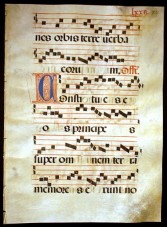 nes orbis terre uerba
eorum. Off.
Constitues e
os principes
super omnem terram
memores erunt no